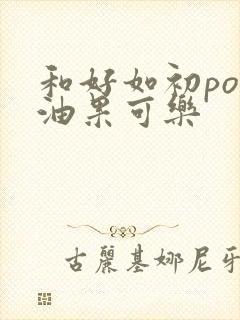 和好如初po
油果可樂
古麗基娜尼牙